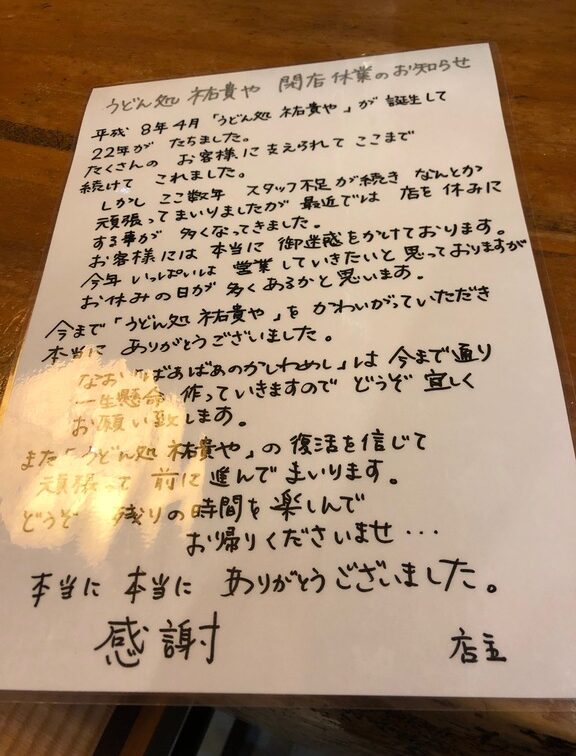 うどん処 祐貴や 閉店休業のお知らせ
平成 8年4月「うどん処 祐貴や」が 誕生して
22年が たちました。
たくさんの お客様に支えられて ここまで
続けて これました。
しかし ここ数年 スタッフ不足が続き なんとか
頑張ってまいりましたが 最近では 店を休みに
する事が 多くなってきました。
お客様には 本当に 御迷惑をかけております。
今年いっぱいは 営業していきたいと思っておりますが
お休みの日が 多くあるかと思います。
今まで「うどん処 祐貴や」を かわいがっていただき
本当に ありがとうございました。
なお「ばあばぁのかしわめし」は 今まで通り
一生懸命 作っていきますので どうぞ 宜しく
お願い致します。
また「うどん処 祐貴や」の 復活を信じて
頑張って 前に 進んでまいります。
どうぞ 残りの時間を 楽しんで
お帰りくださいませ・・・
本当に 本当に ありがとうございました。
感謝 店主